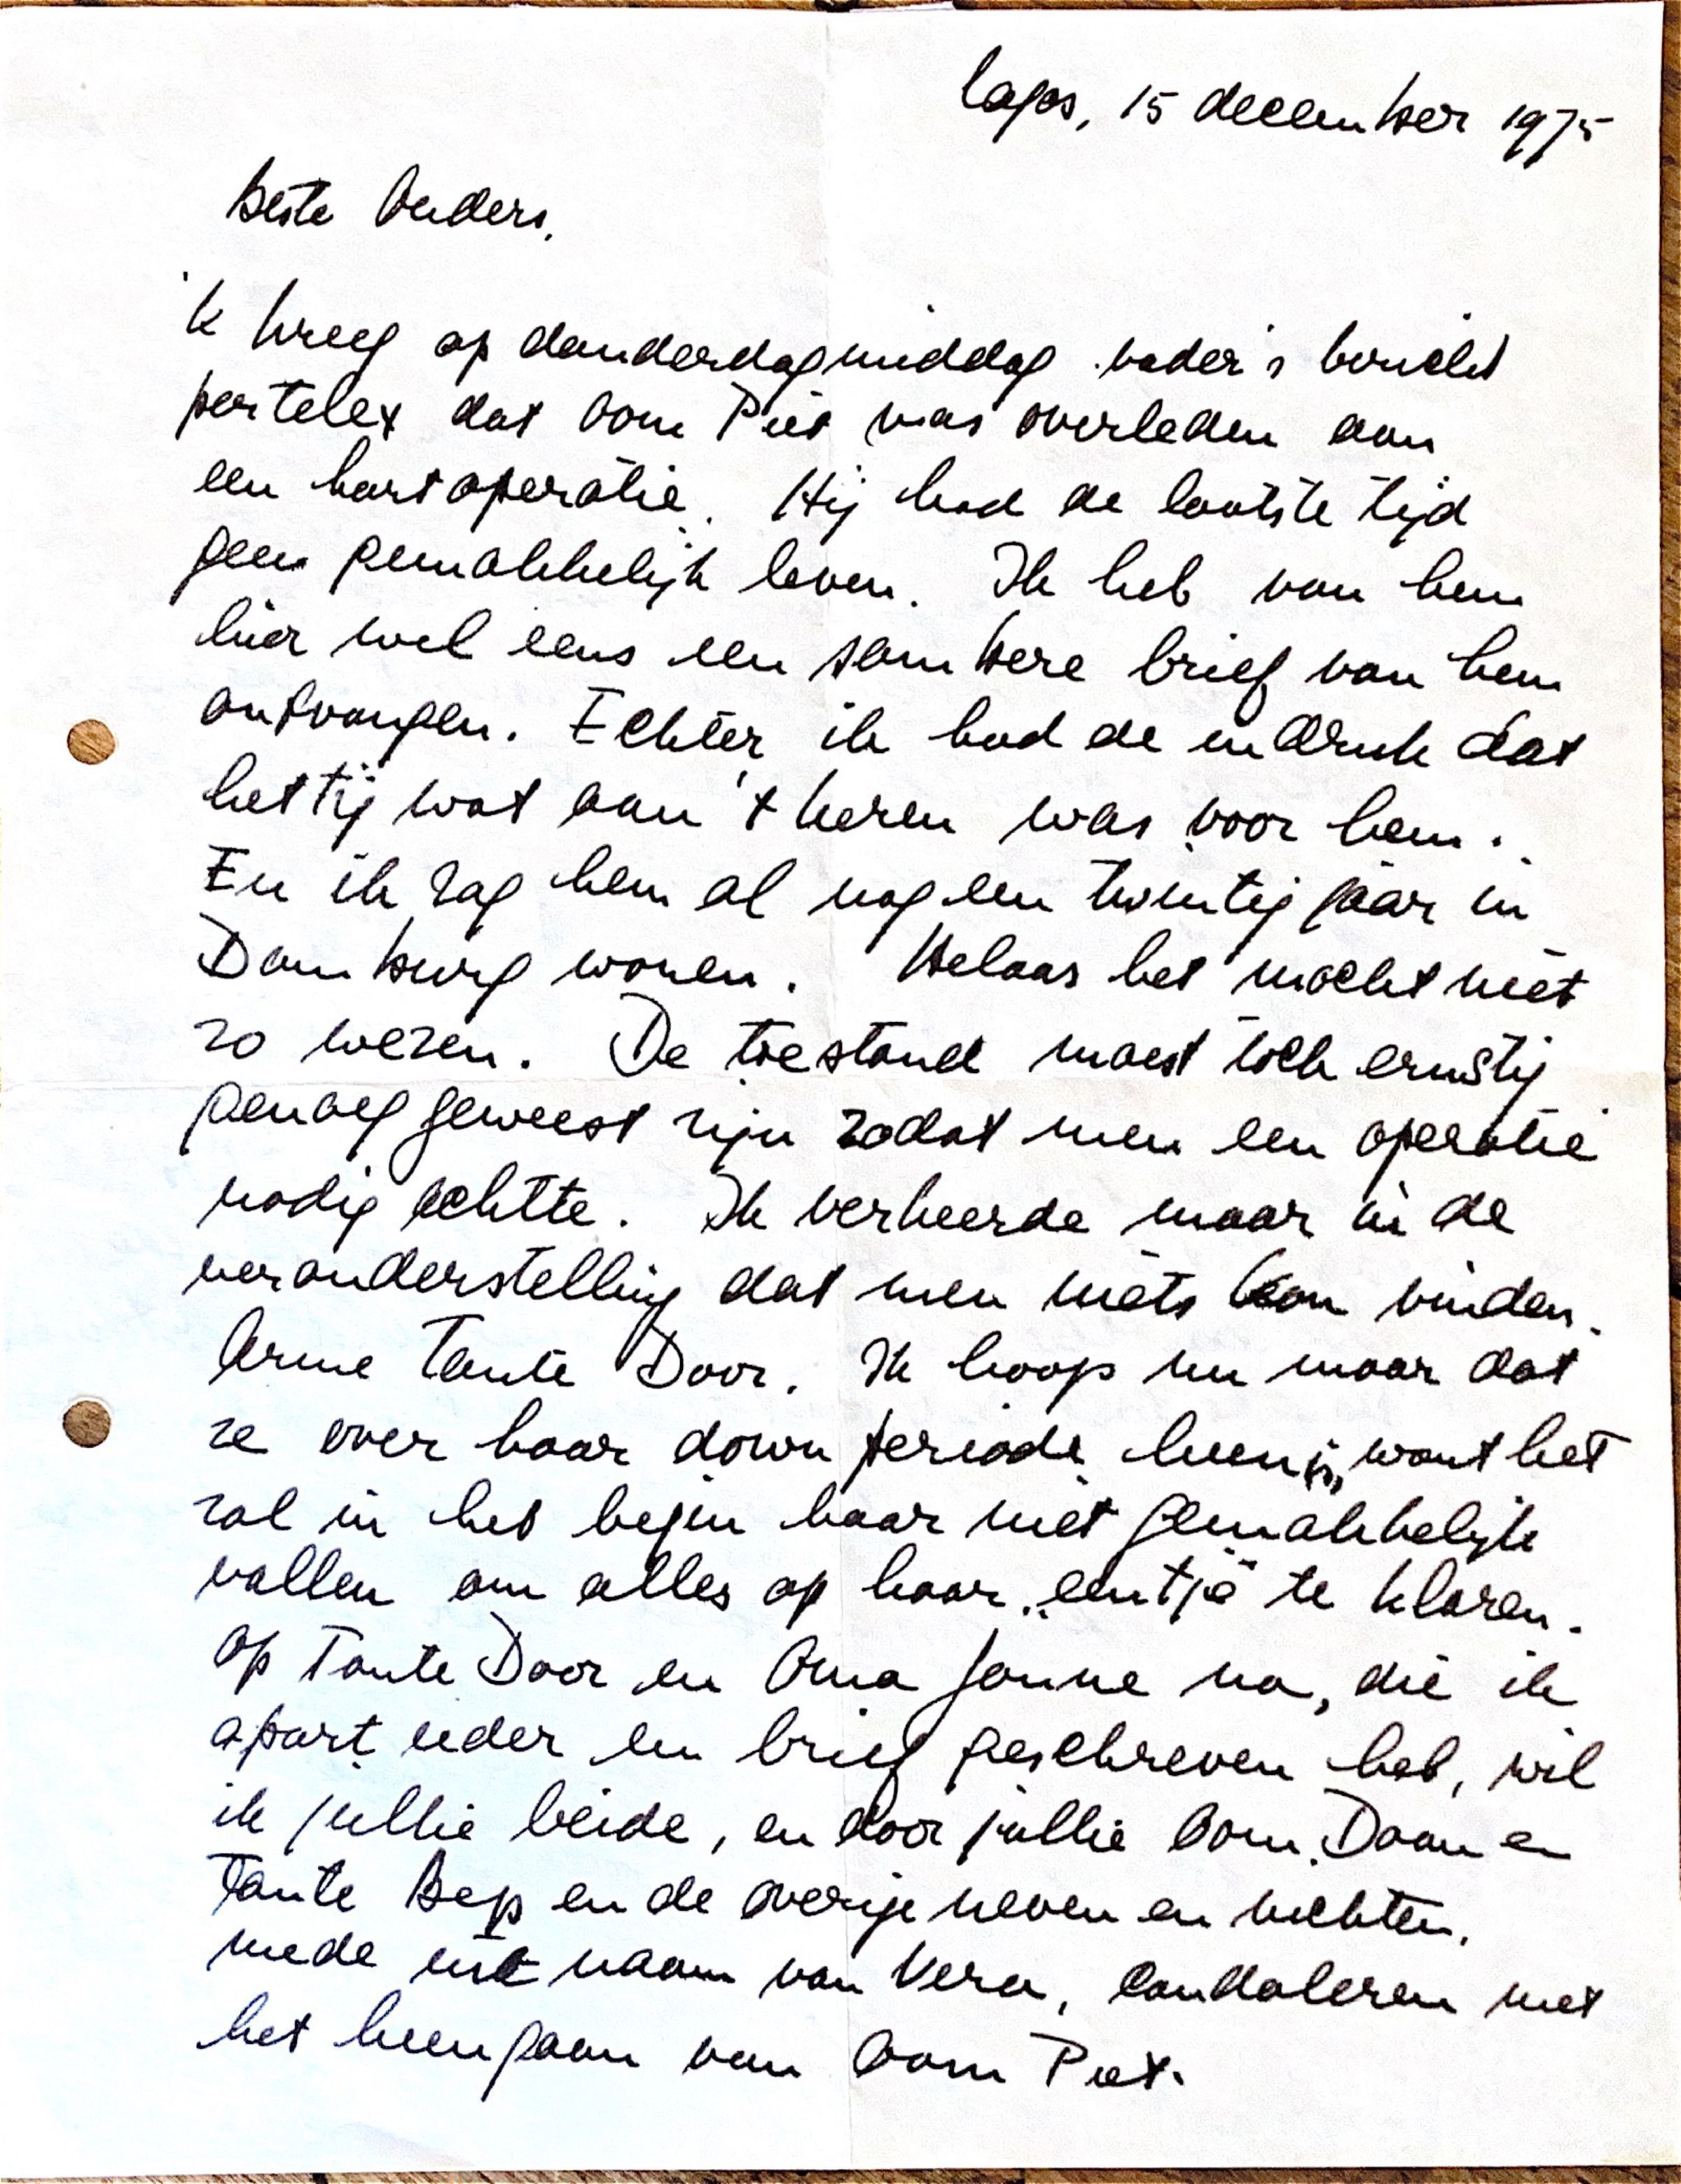 Lagos, 15 december 1975
Beste Ouders,
Ik kreeg op donderdagmiddag vader's bericht
per telex dat Oom Piet was overleden aan
een hartoperatie. Hij had de laatste tijd
geen gemakkelijk leven. Ik heb van hem
hier wel eens een sombere brief van hem
ontvangen. Echter ik had de indruk dat
het tij wat aan 't keren was voor hem.
En ik zag hem al nog een twintig jaar in
Domburg wonen. Helaas het mocht niet
zo wezen. De toestand moest toch ernstig
genoeg geweest zijn zodat men een operatie
nodig achtte. Ik verkeerde maar in de
veronderstelling dat men niets kon vinden.
Arme Tante Door. Ik hoop nu maar dat
ze over haar down periode heen is, want het
zal in het begin haar niet gemakkelijk
vallen om alles op haar „eentje" te klaren.
Op Tante Door en Oma Janne na, die ik
apart ieder een brief geschreven heb, wil
ik jullie beide, en door jullie Oom Daan en
Tante Bep en de overige neven en nichten,
mede uit naam van Vera, condoleren met
het heengaan van Oom Piet.